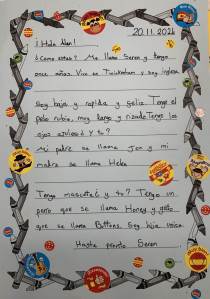 20.11.2024
¡Hola Alan!
¿Cómo estás? Me llamo Seren y tengo
once años. Vivo en Twickenham y soy inglesa
Soy baja y rapida y feliz. Tengo el
pelo rubio, muy largo y rizado. Tengo los
ojos azules y tu?
Mi padre se llama Jon y mi
madre se llama Helen
Tengo mascotas y tu? Tengo un
perro que se llama Honey y gato
que se llama Buttons. Soy hija unica.
Hasta pronto Seren